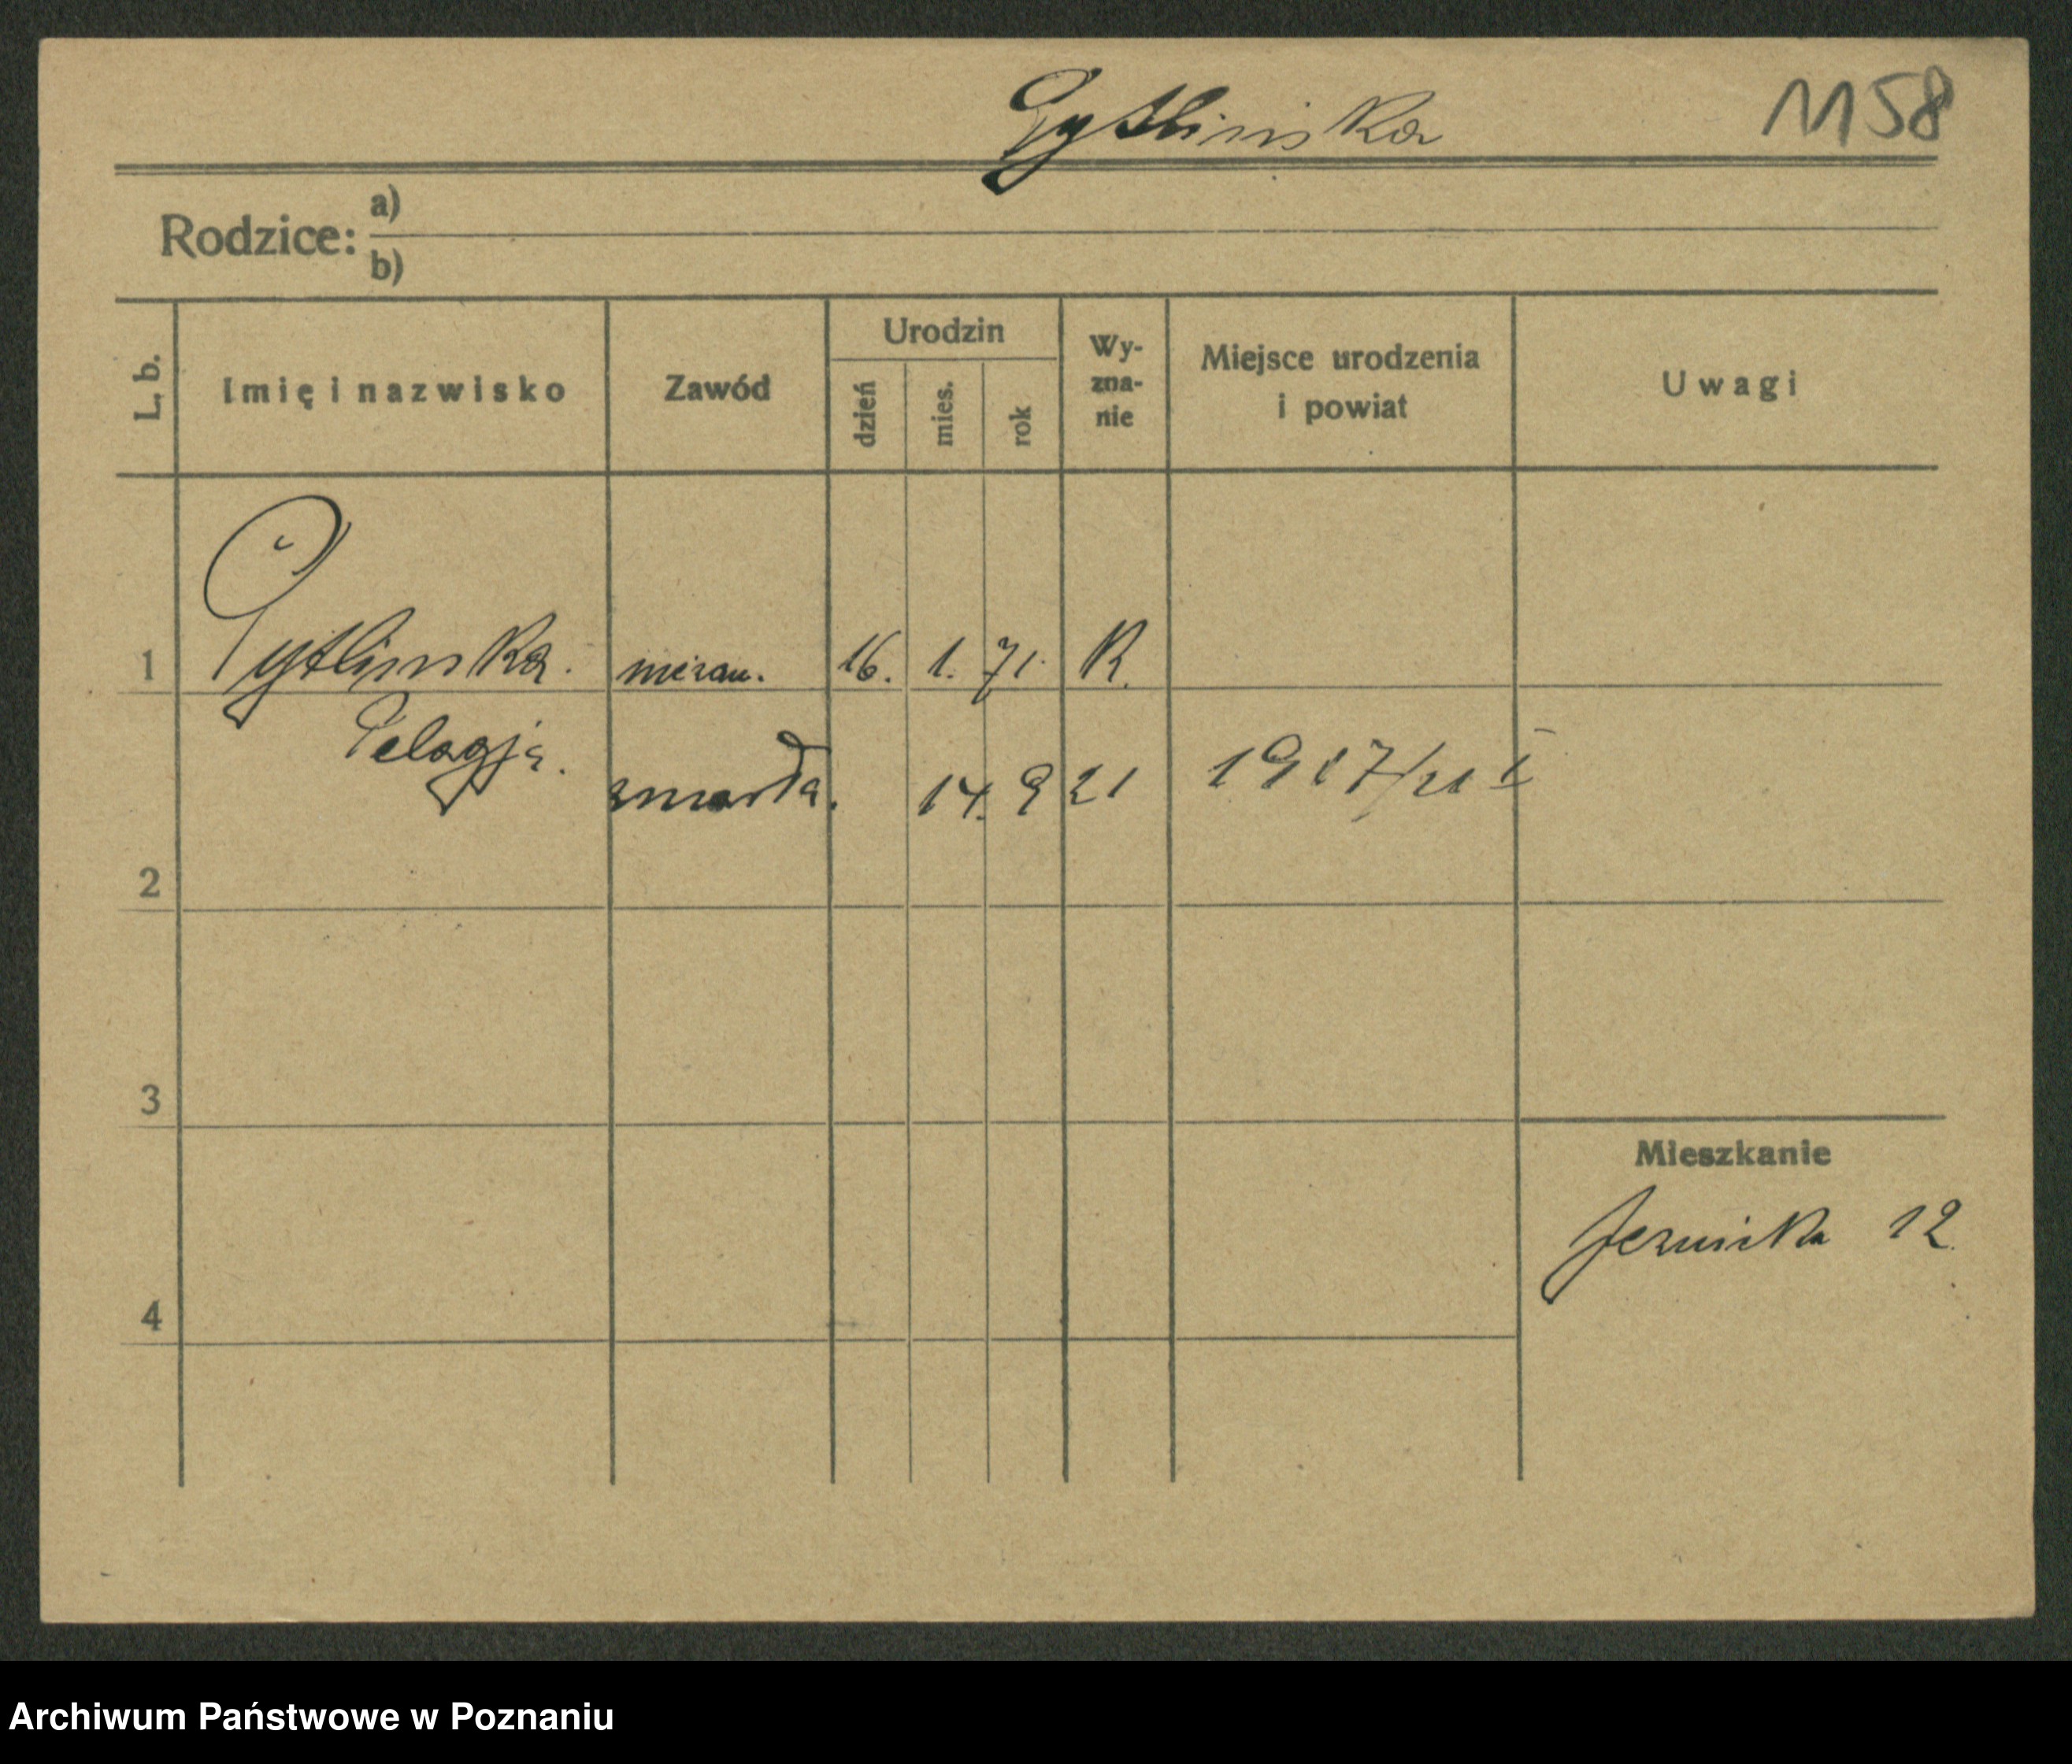 Pytlinska 1158
Rodzice: a)
b)
L. b. Imię i nazwisko Zawód Urodzin dzień mies. rok Wy-zna-nie Miejsce urodzenia i powiat Uwagi
1 Pytlinska. niezam. 16. 1. 71. R.
Pelagja.
zmarła. 14. 9 21 1917/21 I
2
3
Mieszkanie
Jezuicka 12
4
Archiwum Państwowe w Poznaniu